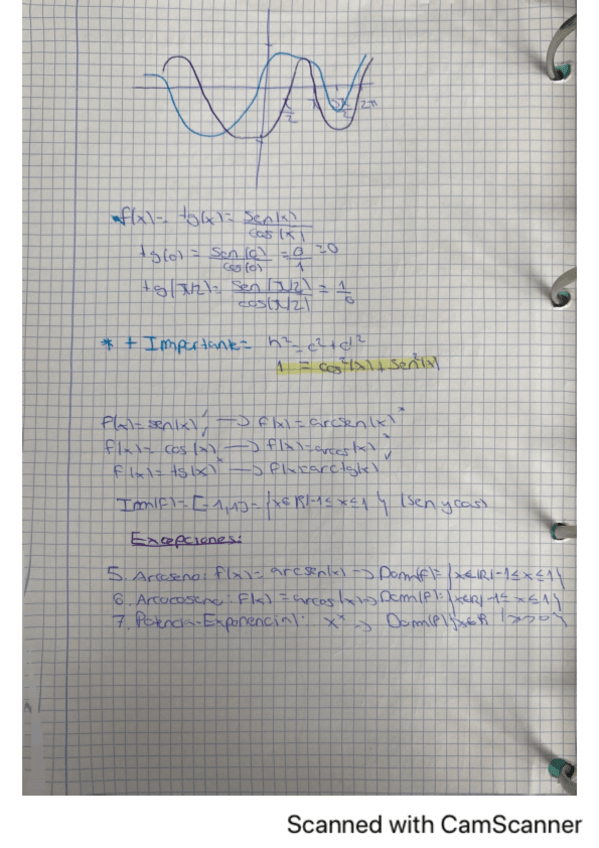 π/2 π 3π/2 2π
*f(x) = tg(x) = sen(x)/cos(x)
tg(0) = sen(0)/cos(0) = 0/1 = 0
tg(π/2) = sen(π/2)/cos(π/2) = 1/0
* + Important = h² = c² + c²
1 = cos²(x) + sen²(x)
f(x) = sen(x) → f(x) = arcsen(x)
f(x) = cos(x) → f(x) = arccos(x)
f(x) = tg(x) → f(x) = arctg(x)
Im(f) = [-1,1] = {x∈R | -1 ≤ x ≤ 1} (sen y cos)
Excepciones:
5. Arcoseno: f(x) = arcsen(x) → Dom(f) = {x∈R | -1 ≤ x ≤ 1}
6. Arcocoseno: f(x) = arcos(x) → Dom(f) = {x∈R | -1 ≤ x ≤ 1}
7. Potencia-Exponencial: xˣ → Dom(f) {x∈R | x>0}
Scanned with CamScanner